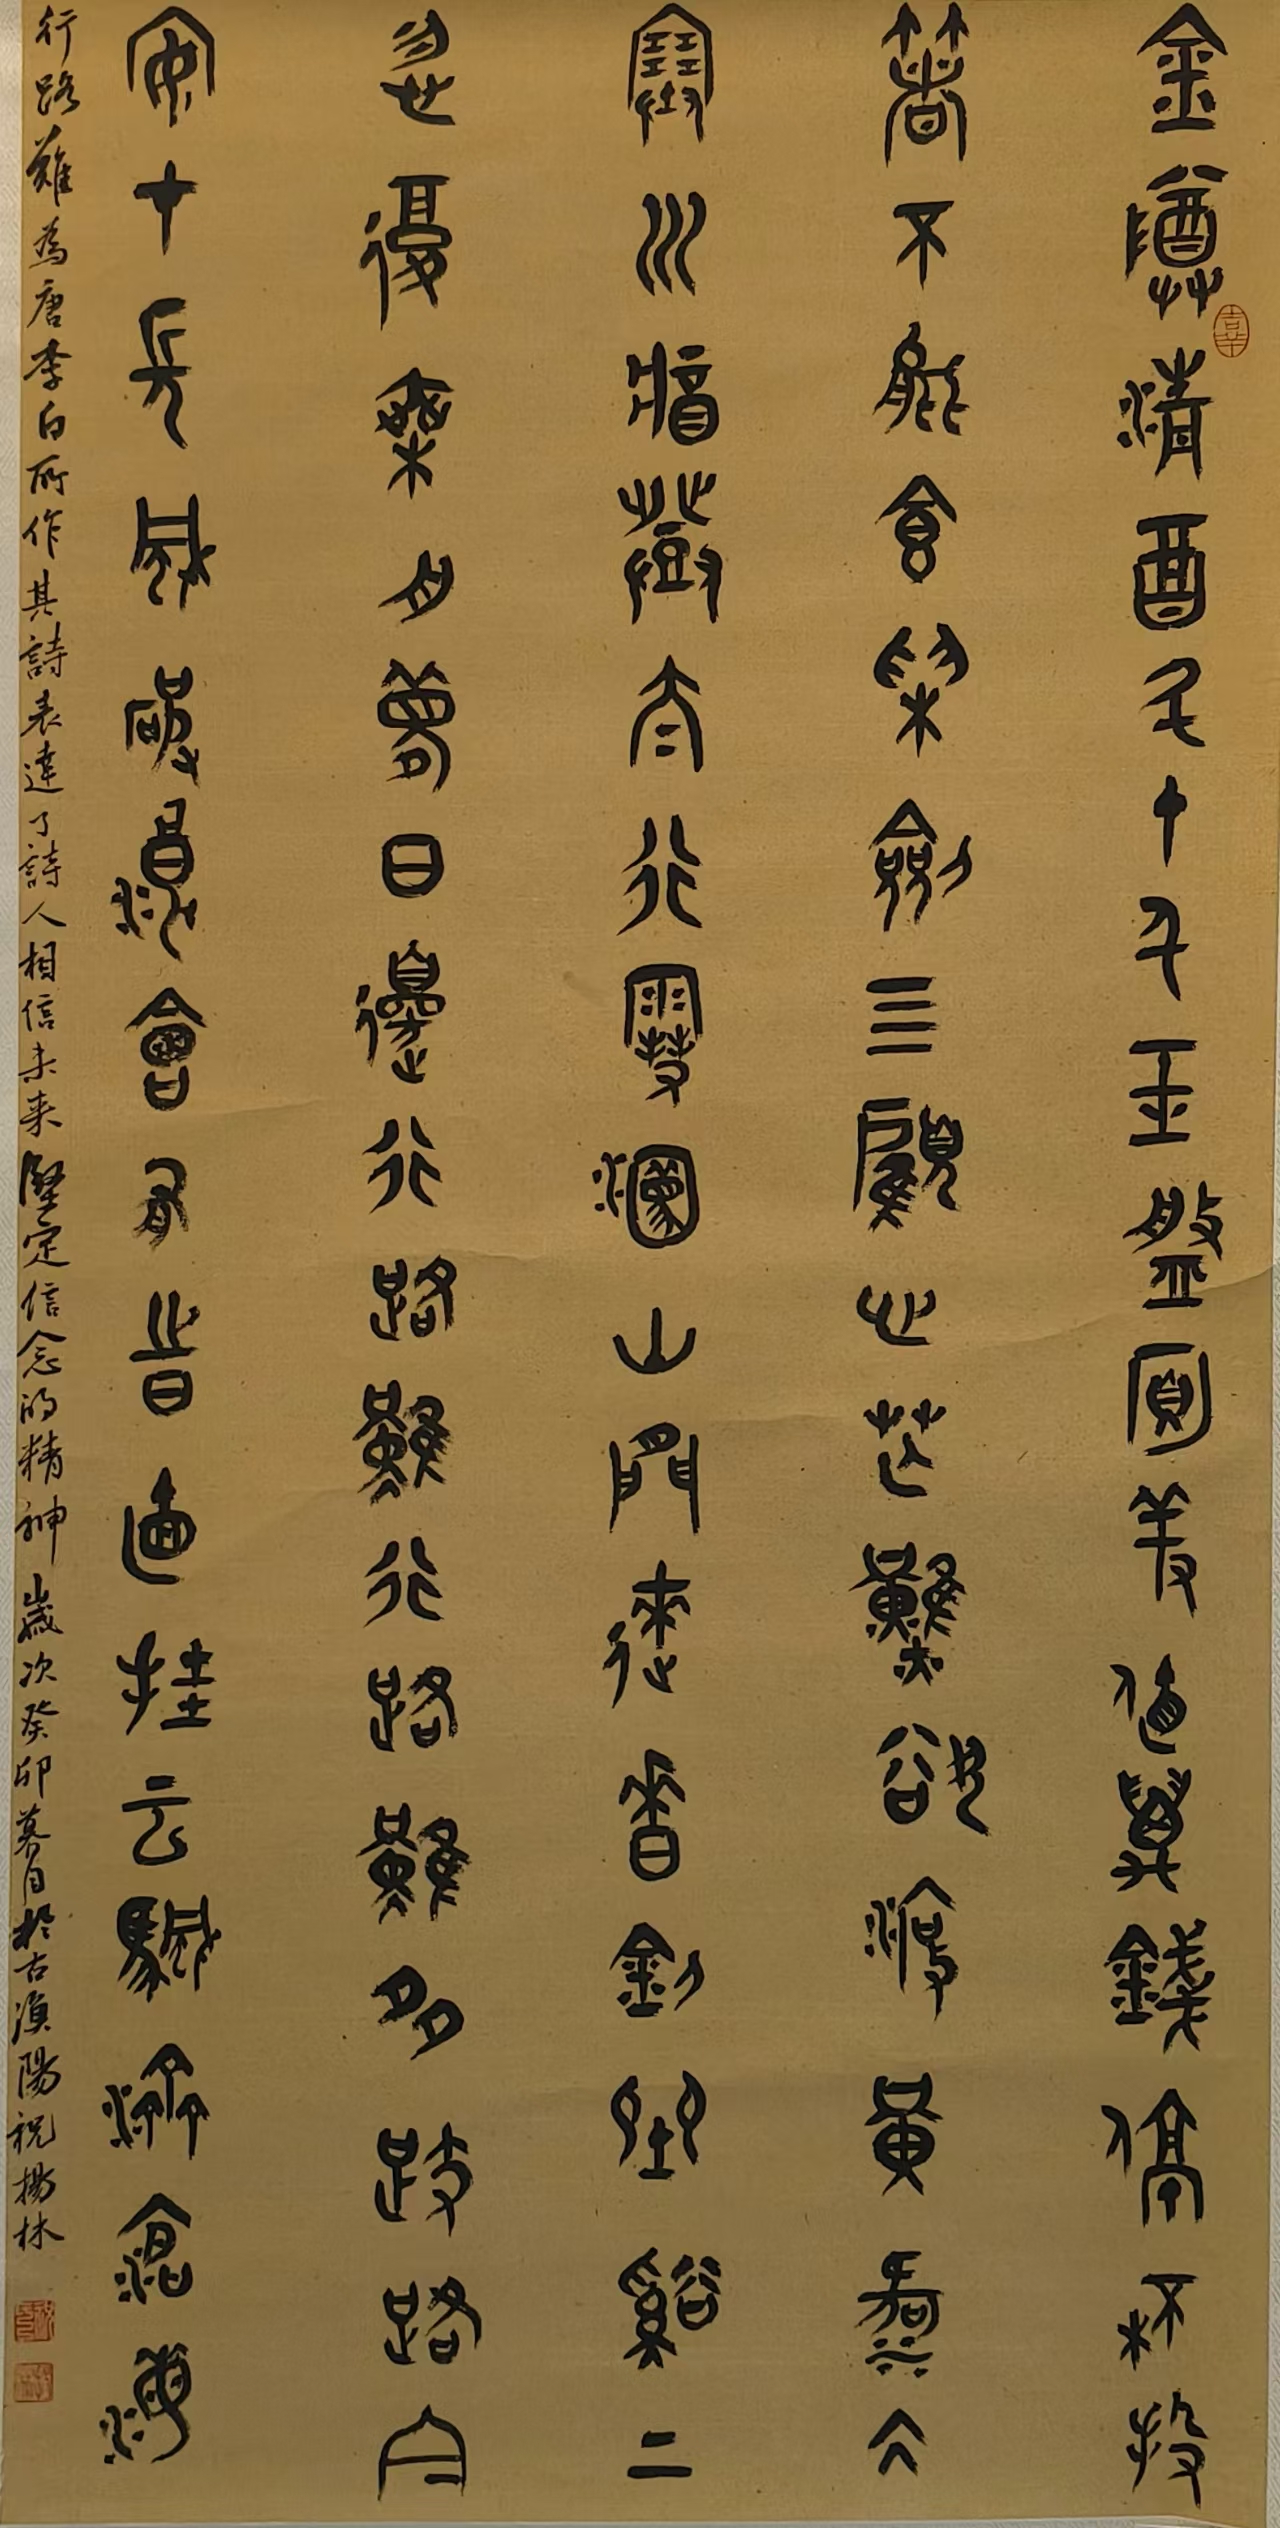 金樽清酒斗十千玉盤珍羞值萬錢停杯投
箸不能食拔劍四顧心茫然欲渡黃河冰
塞川將登太行雪滿山閒來垂釣坐谿上
忽復乘舟夢日邊行路難行路難多歧路今
安在長風破浪會有時直挂云帆濟滄海
行路難為唐李白所作其詩表達了詩人相信未来堅定信念的精神歲次癸卯暮月於古滇陽祝楊林